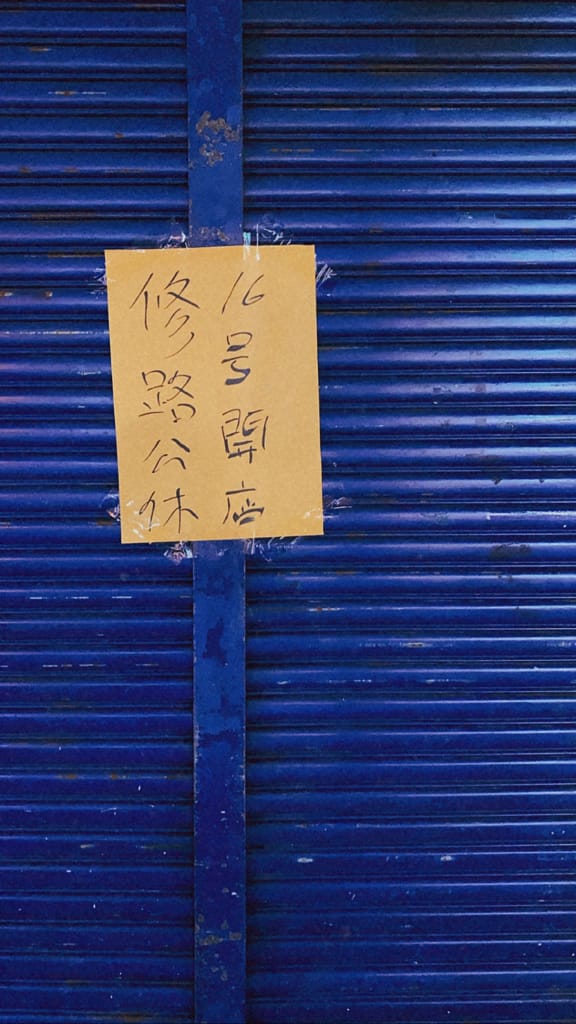 16号開店
修路公休